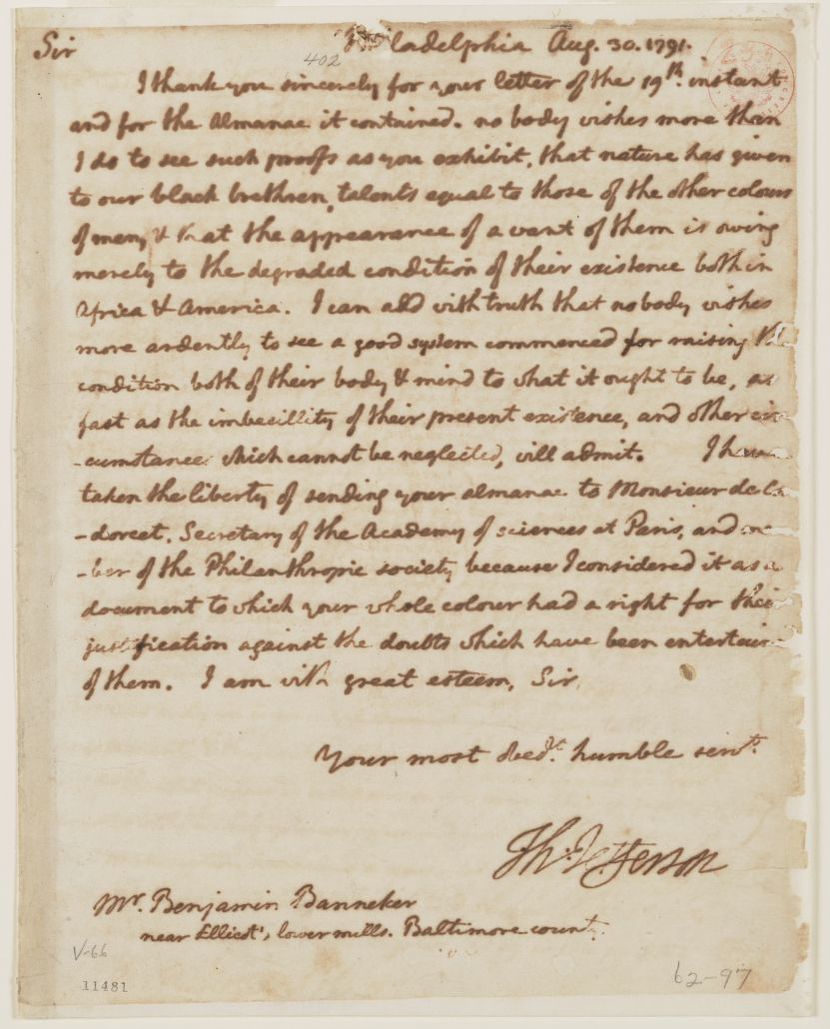 Sir Philadelphia Aug. 30. 1791.
402
I thank you sincerely for your letter of the 19th. instant
and for the Almanac it contained. no body wishes more than
I do to see such proofs as you exhibit, that nature has given
to our black brethren, talents equal to those of the other colours
of men, & that the appearance of a want of them is owing
merely to the degraded condition of their existence both in
Africa & America. I can add with truth that no body wishes
more ardently to see a good system commenced for raising the
condition both of their body & mind to what it ought to be, as
fast as the imbecillity of their present existence, and other cir
-cumstances which cannot be neglected, will admit. I have
taken the liberty of sending your almanac to Monsieur de
-dorcet, Secretary of the Academy of sciences at Paris, and
-ber of the Philanthropic society because I considered it as a
document to which your whole colour had a right for their
justification against the doubts which have been entertain
of them. I am with great esteem, Sir,
Your most obedt. humble servt.
Th: Jefferson
Mr. Benjamin Banneker
near Ellicot's, lower mills. Baltimore county.
V-66
11481
62-97